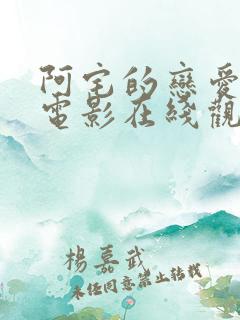 阿宅的戀愛
電影在綫觀
楊嘉武
未經同意禁止轉載